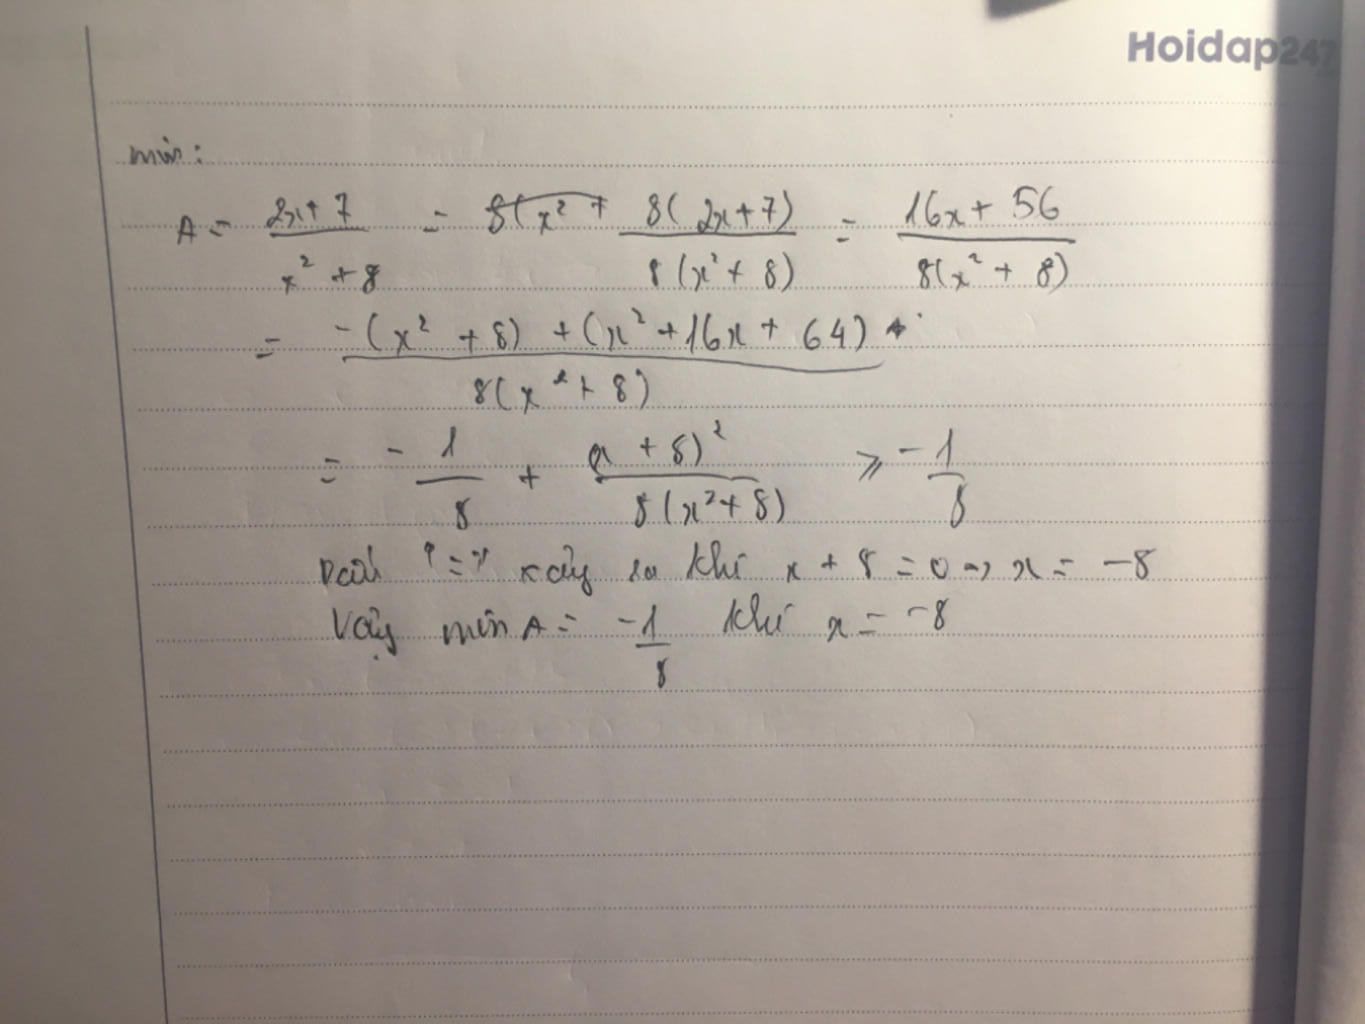 Hoidap247
min:
A = \frac{2x+7}{x^2+8} = 8(x^2+ \frac{8(2x+7)}{8(x^2+8)} = \frac{16x+56}{8(x^2+8)}
= \frac{-(x^2+8)+(x^2+16x+64)}{8(x^2+8)}
= -\frac{1}{8} + \frac{(x+8)^2}{8(x^2+8)} ⩾ \frac{-1}{8}
Dấu "=" xảy ra khi x + 8 = 0 → x = -8
Vậy min A = \frac{-1}{8} khi x = -8